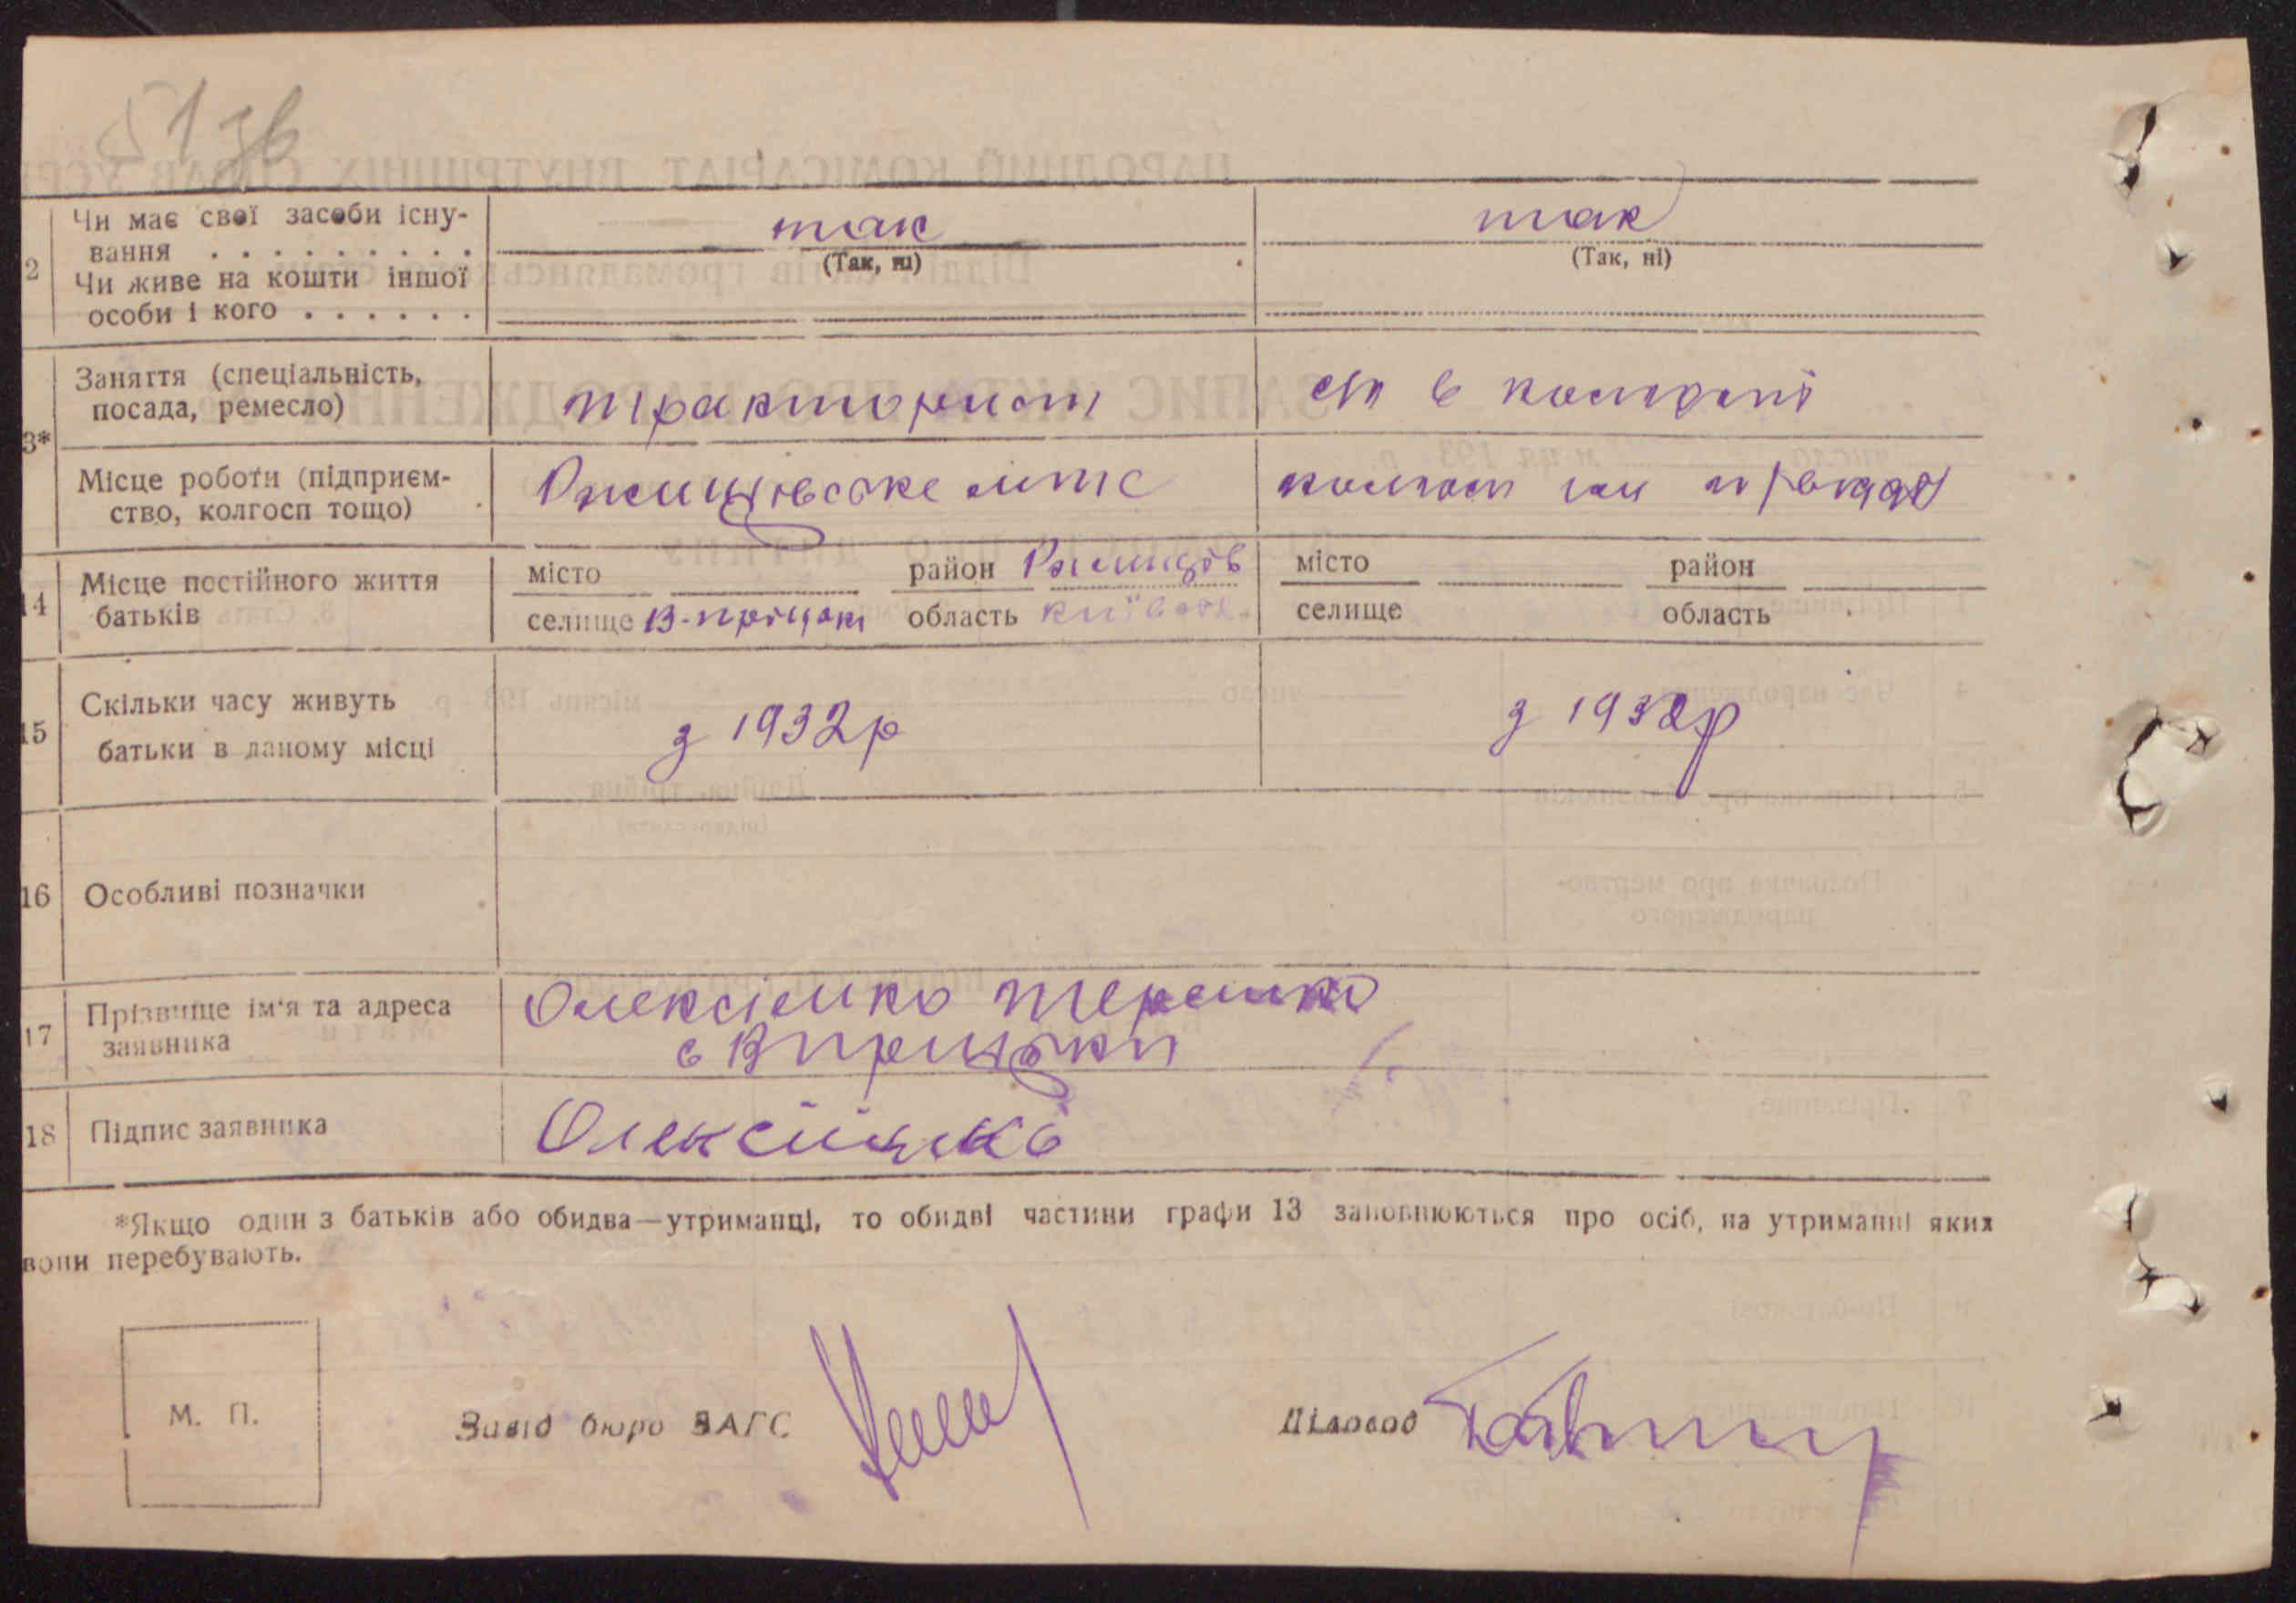 51 зв
2 Чи має свої засоби існу-
вання . . . . . . . . . . так так
(Так, ні) (Так, ні)
Чи живе на кошти іншої
особи і кого . . . . . .
3* Заняття (спеціальність,
посада, ремесло) тракторист в колгоспі
Місце роботи (підприєм-
ство, колгосп тощо) Ржищівське мтс колгосп
14 Місце постійного життя
батьків
місто район Ржищів місто район
селище В-прицьки область київськ. селище область
15 Скільки часу живуть
батьки в даному місці з 1932р з 1932р
16 Особливі позначки
17 Прізвище ім'я та адреса
заявника
Олексієнко Терешко
с В прицьки
18 Підпис заявника Олексієнко
*Якщо один з батьків або обидва—утриманці, то обидві частини графи 13 заповнюються про осіб, на утриманні яких
вони перебувають.
М. П. Завід бюро ЗАГС Діловод